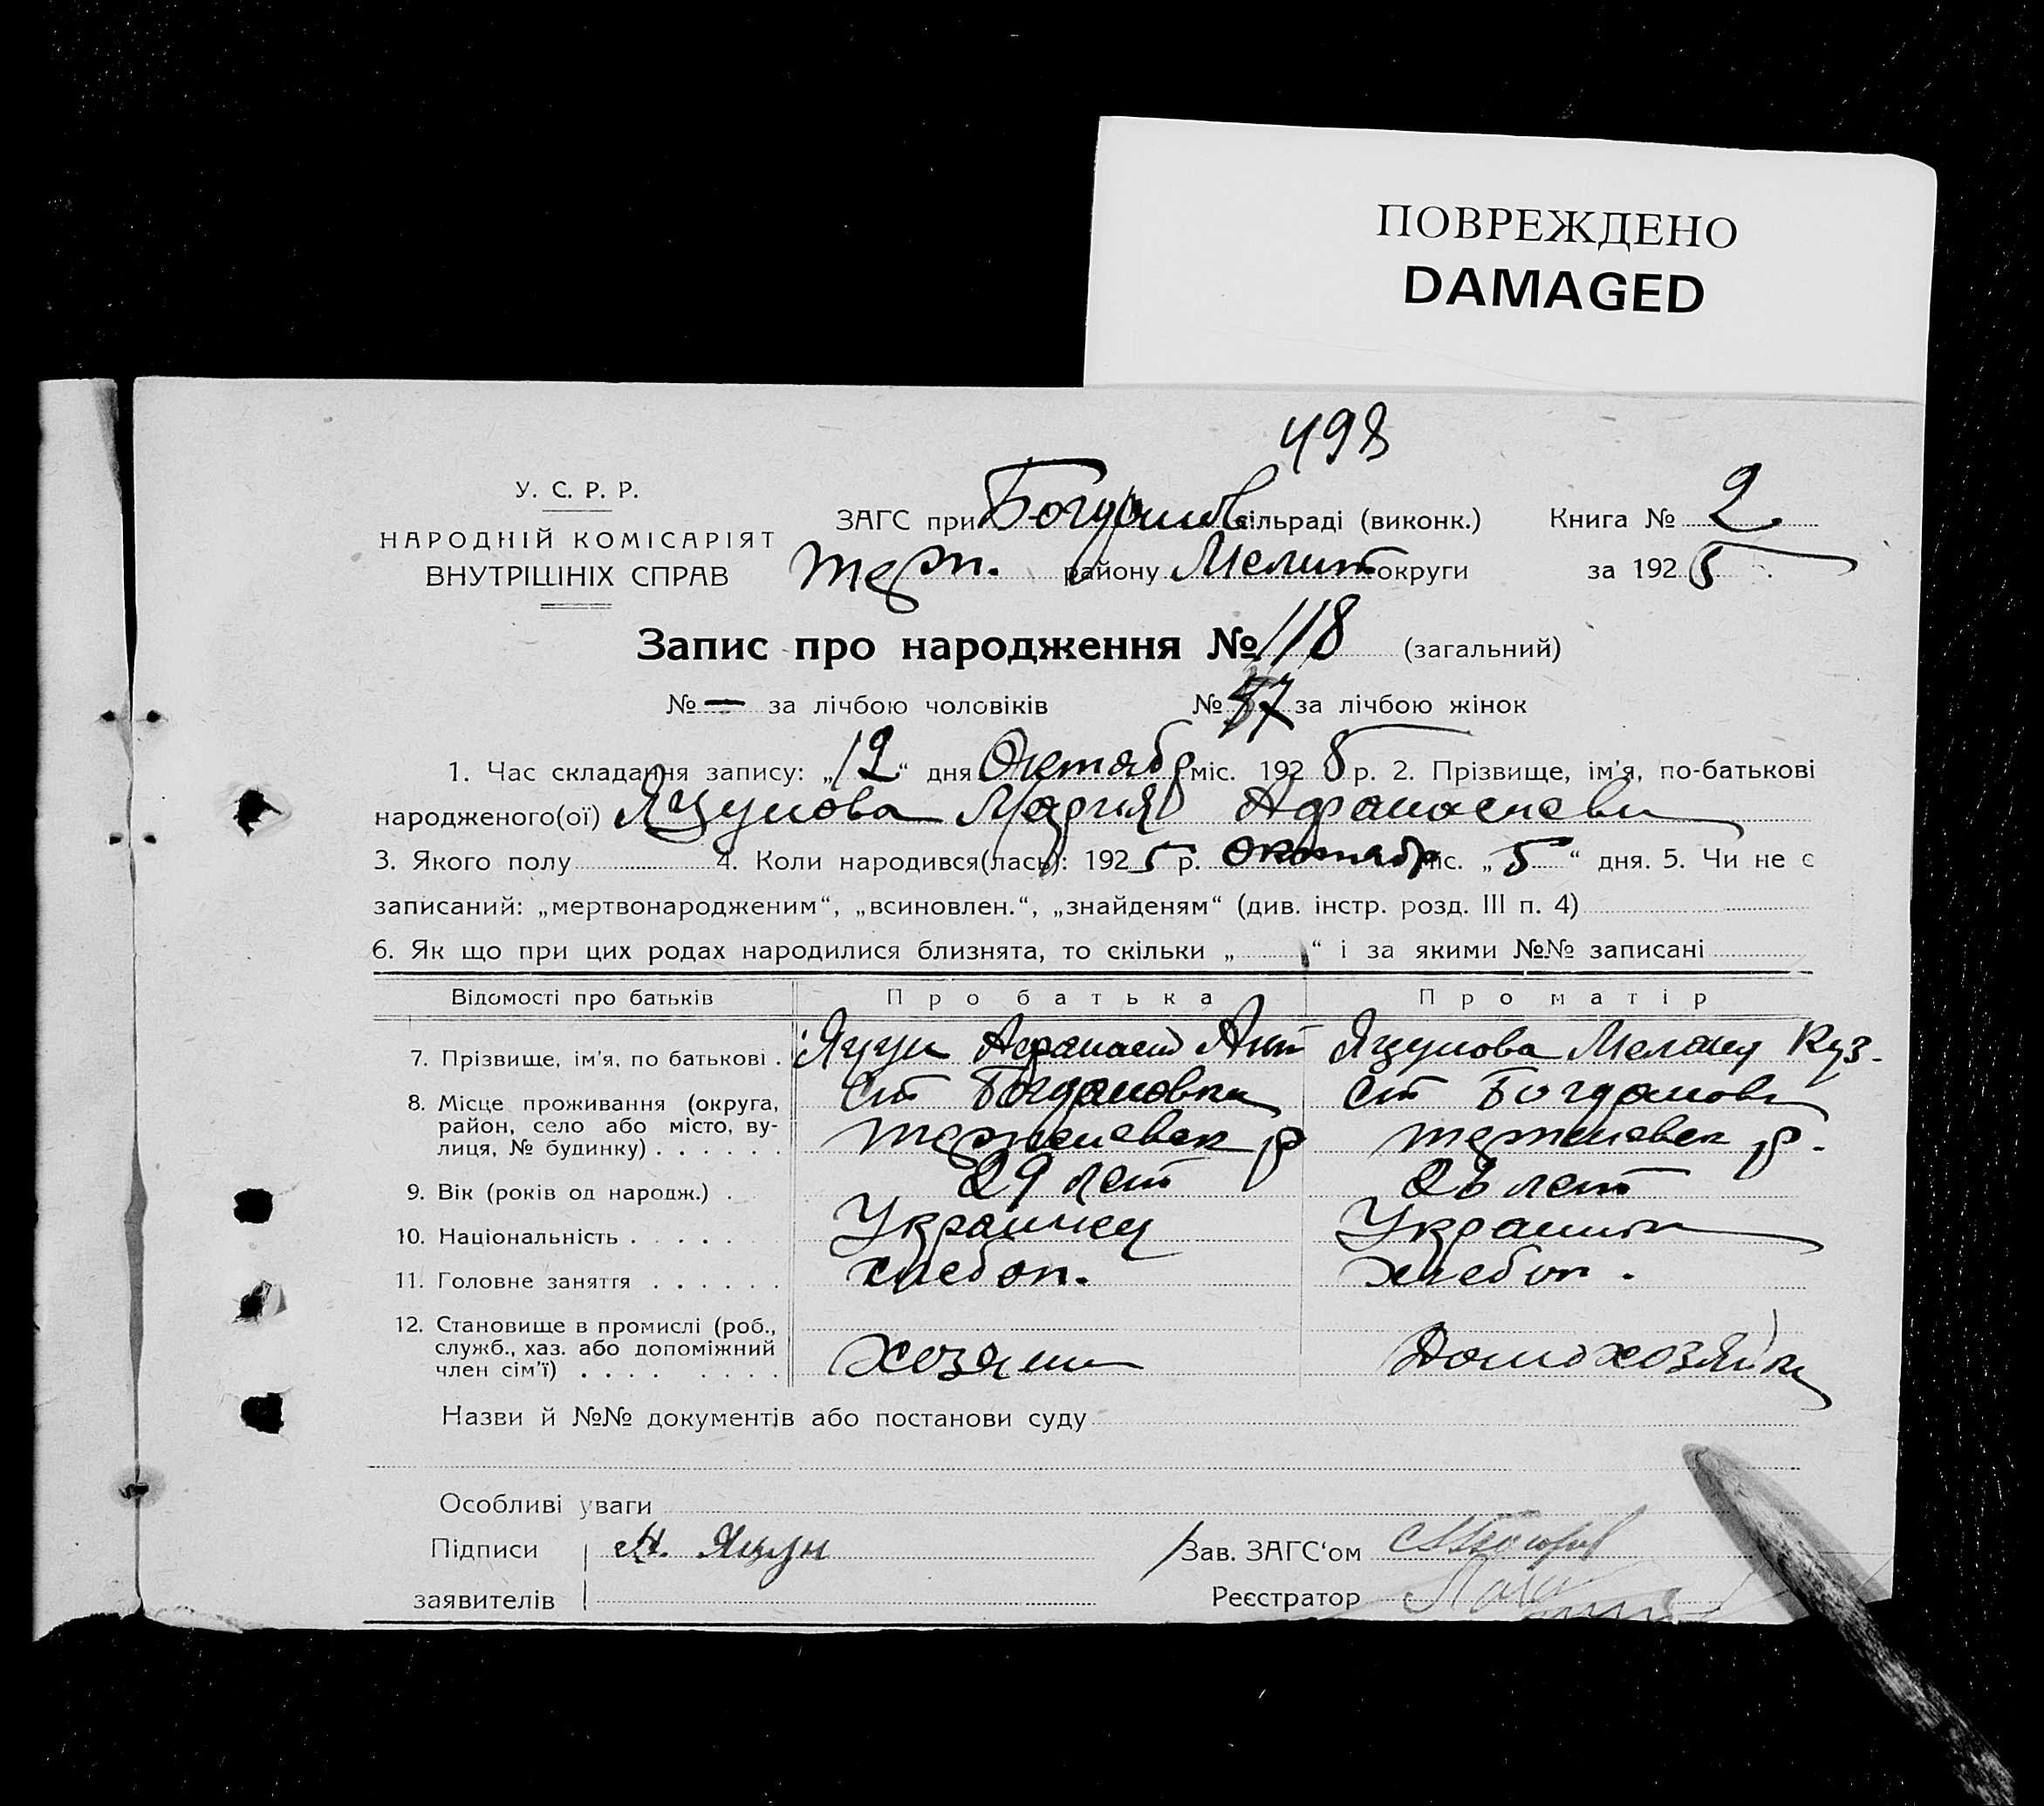 ПОВРЕЖДЕНО
DAMAGED
498
У. С. Р. Р.
НАРОДНІЙ КОМІСАРІЯТ
ВНУТРІШНІХ СПРАВ
ЗАГС при Богданов сільраді (виконк.) Книга № 2
Терп. району Мелит округи за 1925
Запис про народження № 118 (загальний)
№ — за лічбою чоловіків № 57 за лічбою жінок
1. Час складання запису: „12“ дня Октябр міс. 1925 р. 2. Прізвище, ім'я, по-батькові
народженого(ої) Яцунова Мария Афанасиевн
3. Якого полу 4. Коли народився(лась): 1925 р. Октябр міс. „5“ дня. 5. Чи не є
записаний: „мертвонародженим“, „всиновлен.“, „знайденям“ (див. інстр. розд. III п. 4)
6. Як що при цих родах народилися близнята, то скільки „ “ і за якими №№ записані
Відомості про батьків Про батька Про матір
7. Прізвище, ім'я, по батькові . Яцун Афанасий Ант Яцунова Мелания Куз.
8. Місце проживання (округа, район, село або місто, вулиця, № будинку) . . . . . . Ст Богдановка Терпеневск р Ст Богдановк Терпеневск р.
9. Вік (років од народж.) . 29 лет 26 лет
10. Національність . . . . . Украинец Украинк
11. Головне заняття . . . . . . хлебоп. хлебоп.
12. Становище в промислі (роб., служб., хаз. або допоміжний член сім'ї) . . . . . . . . Хозяин Домохозяйка
Назви й №№ документів або постанови суду
Особливі уваги
Підписи А. Яцун Зав. ЗАГС'ом
заявителів Реєстратор